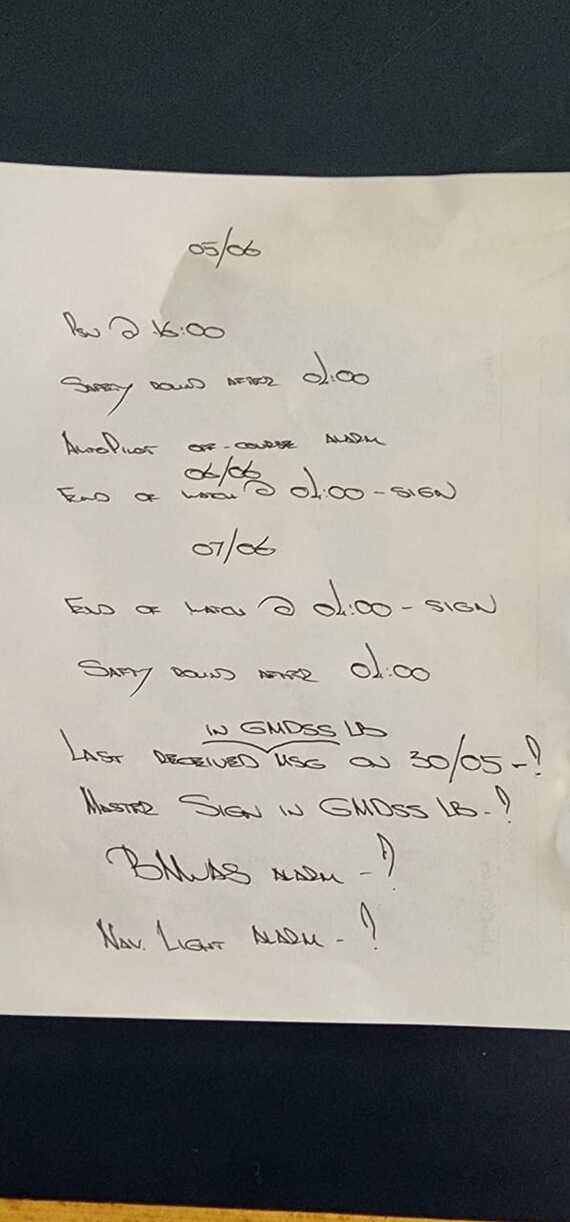 05/06
Psn @ 16:00
SAFETY ROUND AFTER 01:00
AUTOPILOT OFF-COURSE ALARM
06/06
END OF WATCH @ 01:00 - SIGN
07/06
END OF WATCH @ 01:00 - SIGN
SAFTY ROUND AFTER 01:00
IN GMDSS LB
LAST RECEIVED MSG ON 30/05 - ?
MASTER SIGN IN GMDSS LB - ?
BNWAS ALARM - ?
NAV. LIGHT ALARM - ?